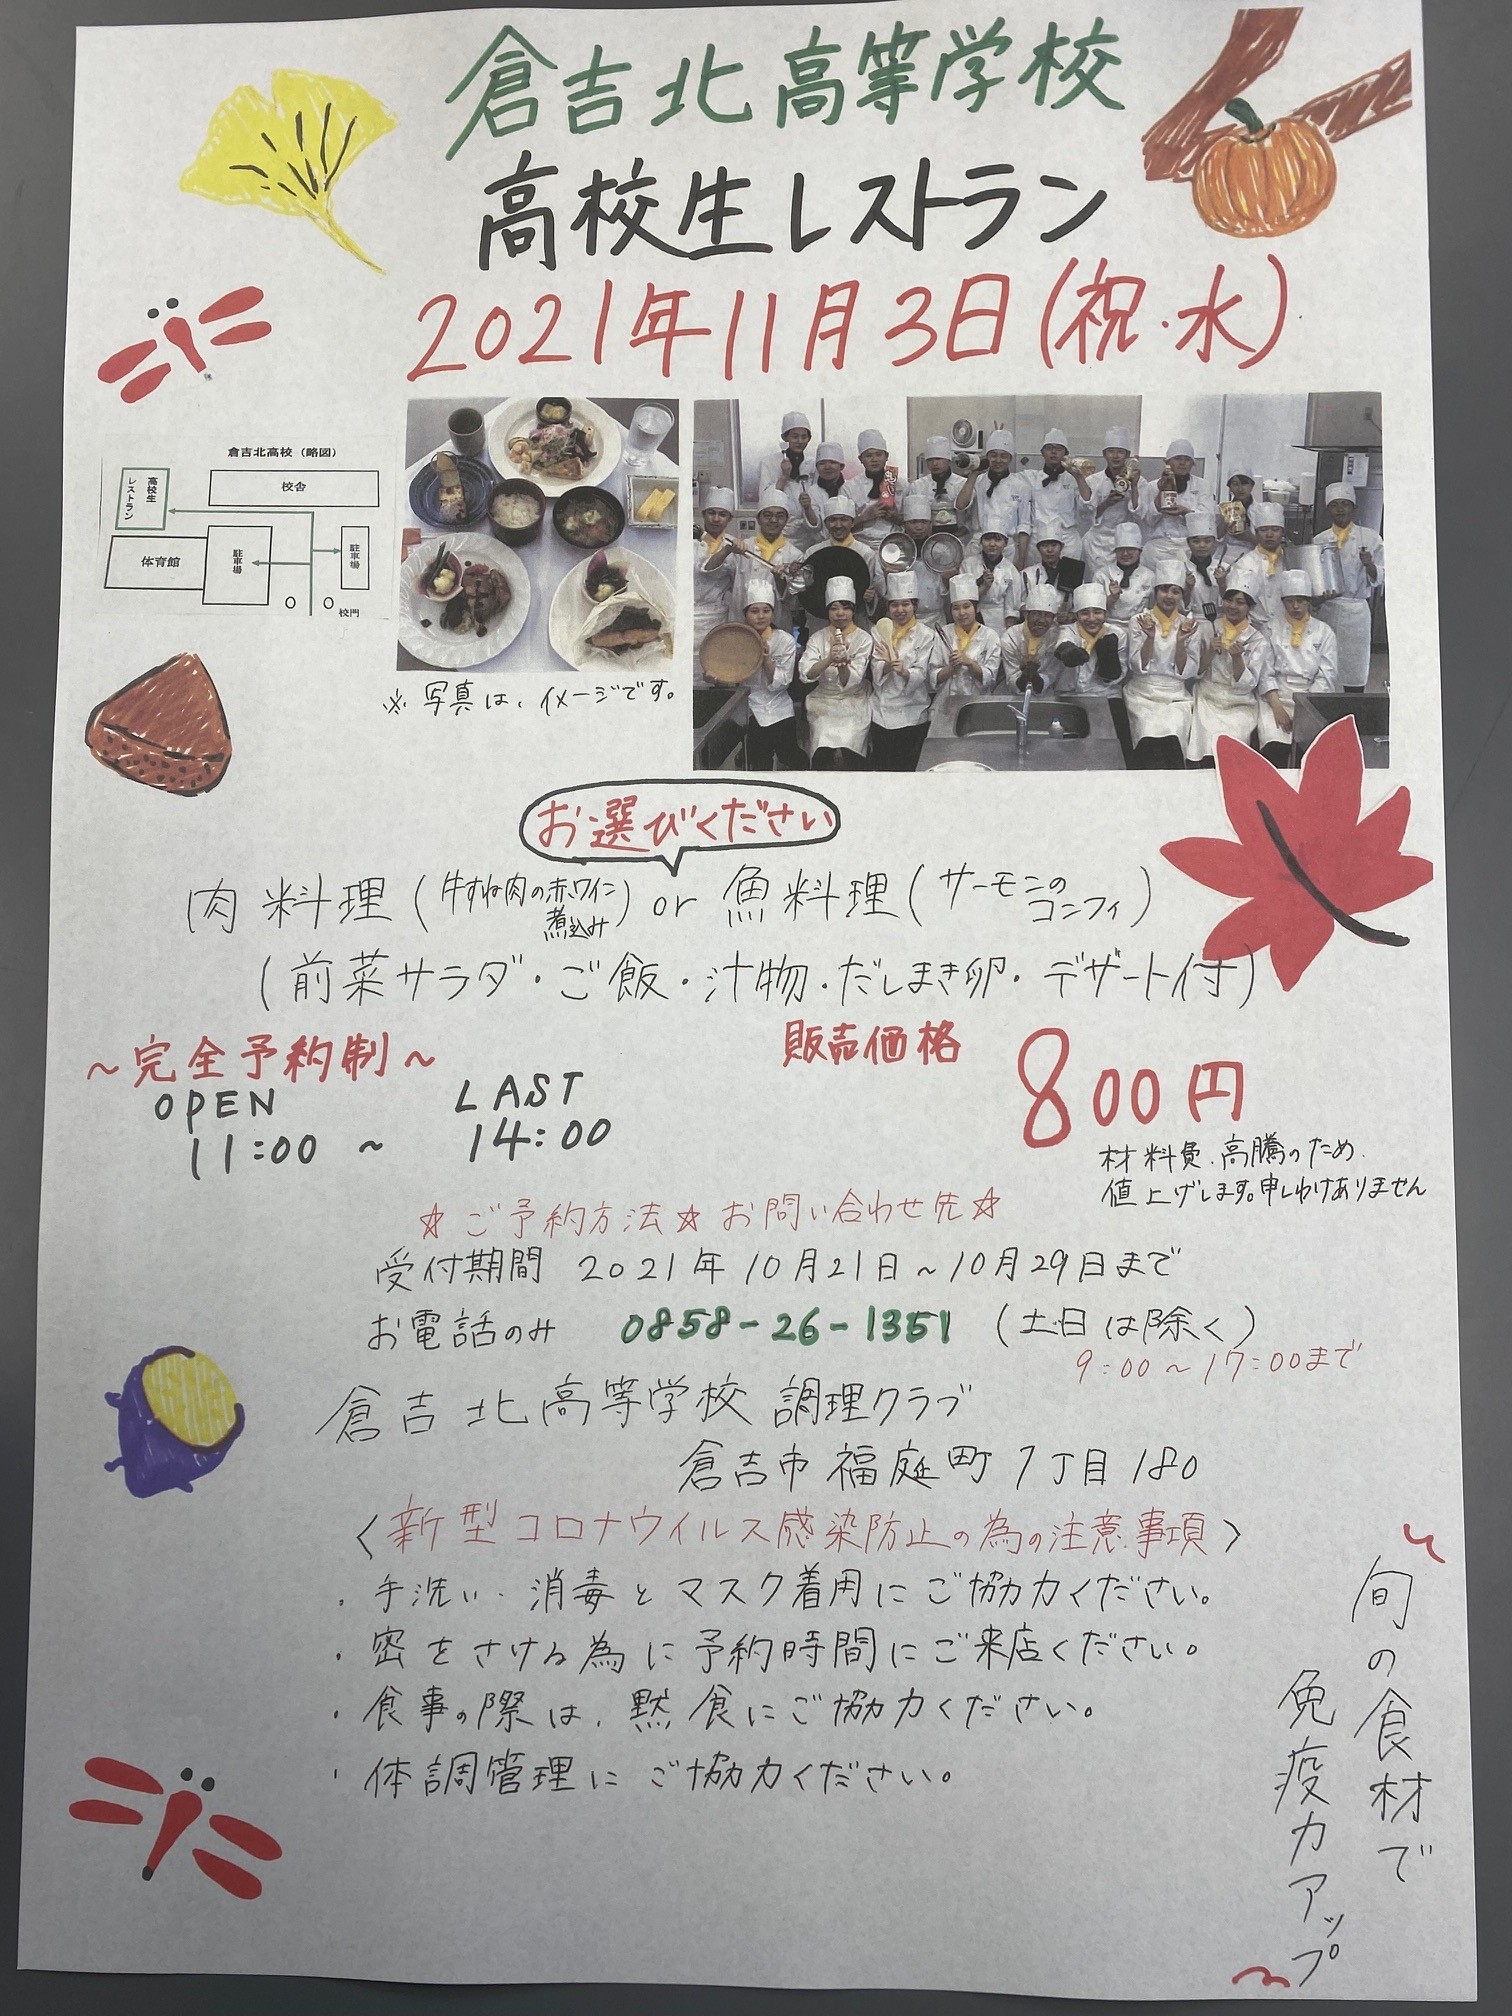 倉吉北高等学校
高校生レストラン
2021年11月3日(祝・水)
倉吉北高校（略図）
高校生
レストラン
校舎
体育館
駐車場
駐車場
校門
※写真は、イメージです。
お選びください
肉料理(牛すね肉の赤ワイン煮込み) or 魚料理(サーモンのコンフィ)
(前菜サラダ・ご飯・汁物・だしまき卵・デザート付)
～完全予約制～
OPEN LAST
11:00 ～ 14:00
販売価格 800円
材料費、高騰のため、
値上げします。申しわけありません
☆ご予約方法☆お問い合わせ先☆
受付期間 2021年10月21日～10月29日まで
お電話のみ 0858-26-1351 (土日は除く)
9:00～17:00まで
倉吉北高等学校 調理クラブ
倉吉市福庭町1丁目180
<新型コロナウイルス感染防止の為の注意事項>
・手洗い、消毒とマスク着用にご協力ください。
・密をさける為に予約時間にご来店ください。
・食事の際は、黙食にご協力ください。
・体調管理にご協力ください。
～旬の食材で
免疫力アップ～